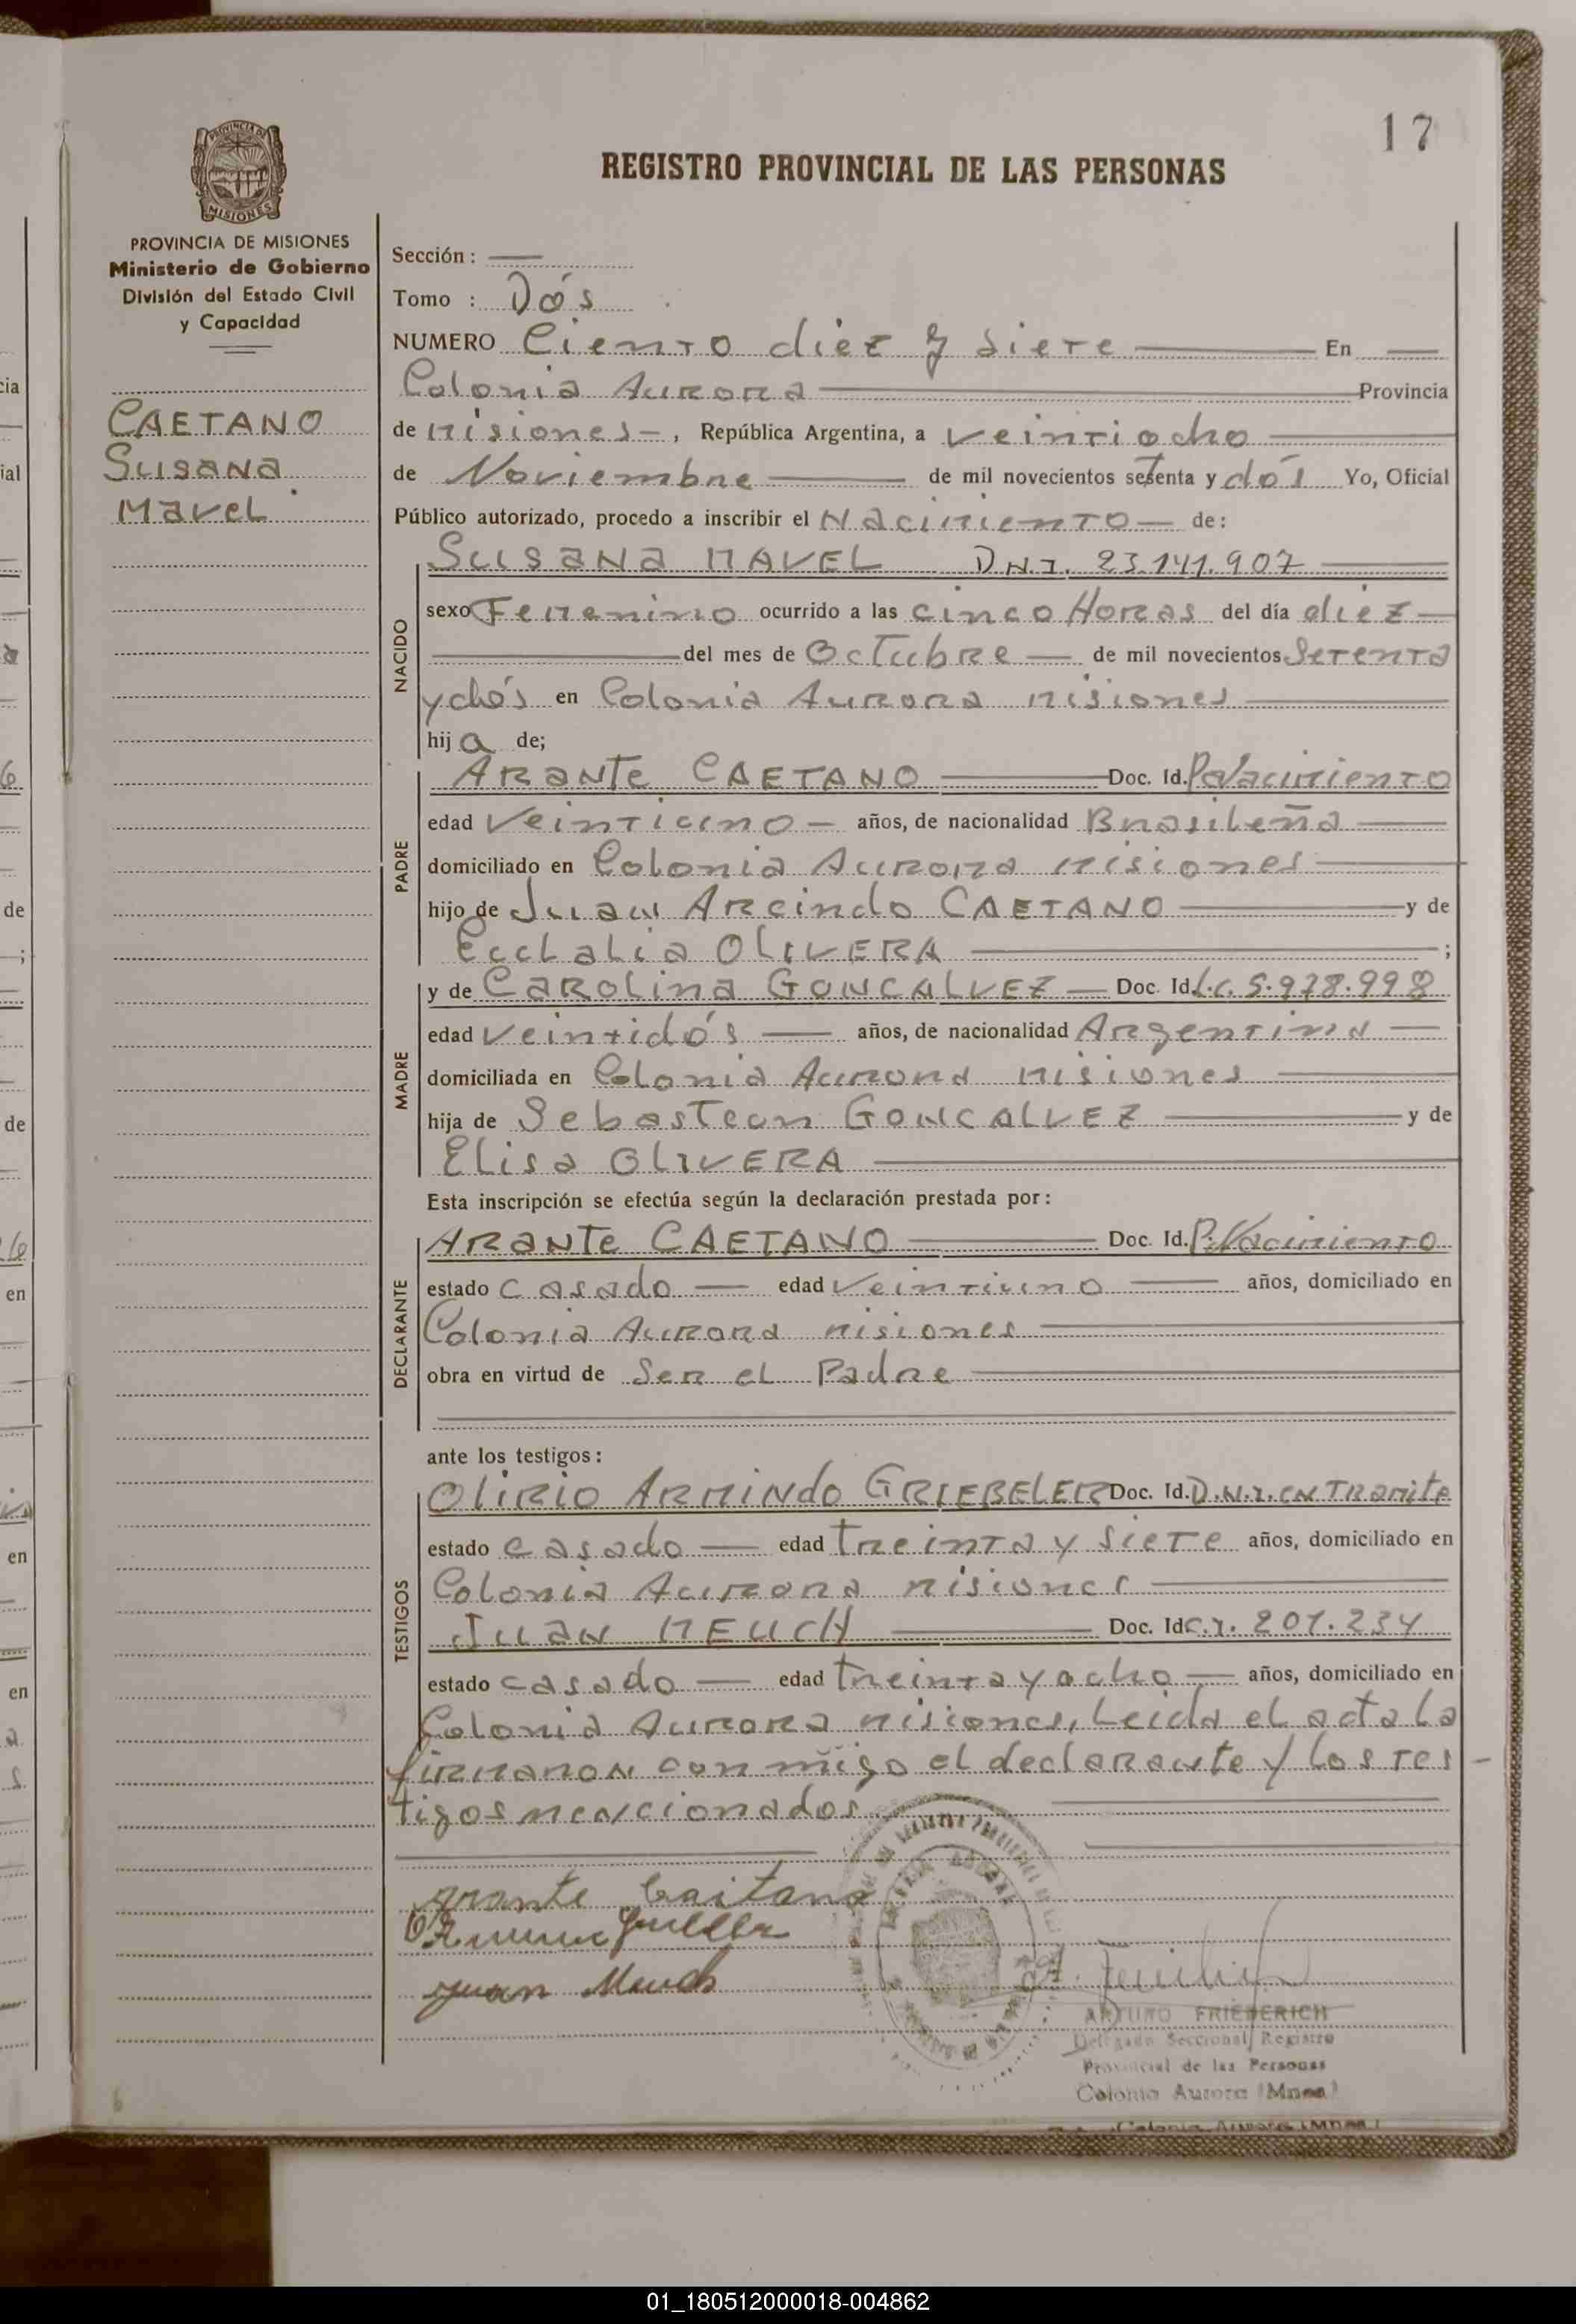 17
REGISTRO PROVINCIAL DE LAS PERSONAS
PROVINCIA DE
MISIONES
PROVINCIA DE MISIONES
Ministerio de Gobierno
División del Estado Civil
y Capacidad
CAETANO
SUSANA
MAVEL
Sección: —
Tomo : Dós
NUMERO Ciento diez y siete — En —
Colonia Aurora — Provincia
de Misiones-, República Argentina, a veintiocho —
de Noviembre — de mil novecientos setenta y dós Yo, Oficial
Público autorizado, procedo a inscribir el Nacimiento — de:
SUSANA MAVEL D.N.I. 23.141.907 —
NACIDO
sexo Femenino ocurrido a las cinco Horas del día diez —
— del mes de Octubre — de mil novecientos Setenta
y dós en Colonia Aurora Misiones —
hija de;
PADRE
ARANTE CAETANO — Doc. Id. P.Nacimiento
edad Veintiuno — años, de nacionalidad Brasileña —
domiciliado en Colonia Aurora Misiones —
hijo de Juan Arcindo CAETANO — y de
OLIVERA — ;
MADRE
y de CAROLINA GONCALVEZ — Doc. Id. L.C. 5.978.998
edad veintidós — años, de nacionalidad Argentina —
domiciliada en Colonia Aurora Misiones —
hija de Sebastean GONCALVEZ — y de
Elisa OLIVERA —
Esta inscripción se efectúa según la declaración prestada por:
DECLARANTE
ARANTE CAETANO — Doc. Id. P.Nacimiento
estado casado — edad Veintiuno — años, domiciliado en
Colonia Aurora Misiones —
obra en virtud de Ser el Padre —
ante los testigos:
TESTIGOS
OLIRIO ARMINDO GRIEBELER Doc. Id. D.N.I. en Tramite
estado casado — edad treinta y siete años, domiciliado en
Colonia Aurora Misiones —
JUAN MEUCH — Doc. Id C.I. 201.234
estado casado — edad treinta y ocho — años, domiciliado en
Colonia Aurora Misiones, Leida el acta la
firmaron conmigo el declarante y los tes-
tigos mencionados
Arante Caitano
Juan Meuch
ARTURO FRIEDERICH
Delegado Seccional Registro
Provincial de las Personas
Colonia Aurora (Mnes)
Colonia Aurora (Mnes)
cia
ial
6
de
;
de
16
en
en
en
a
s
01_180512000018-004862